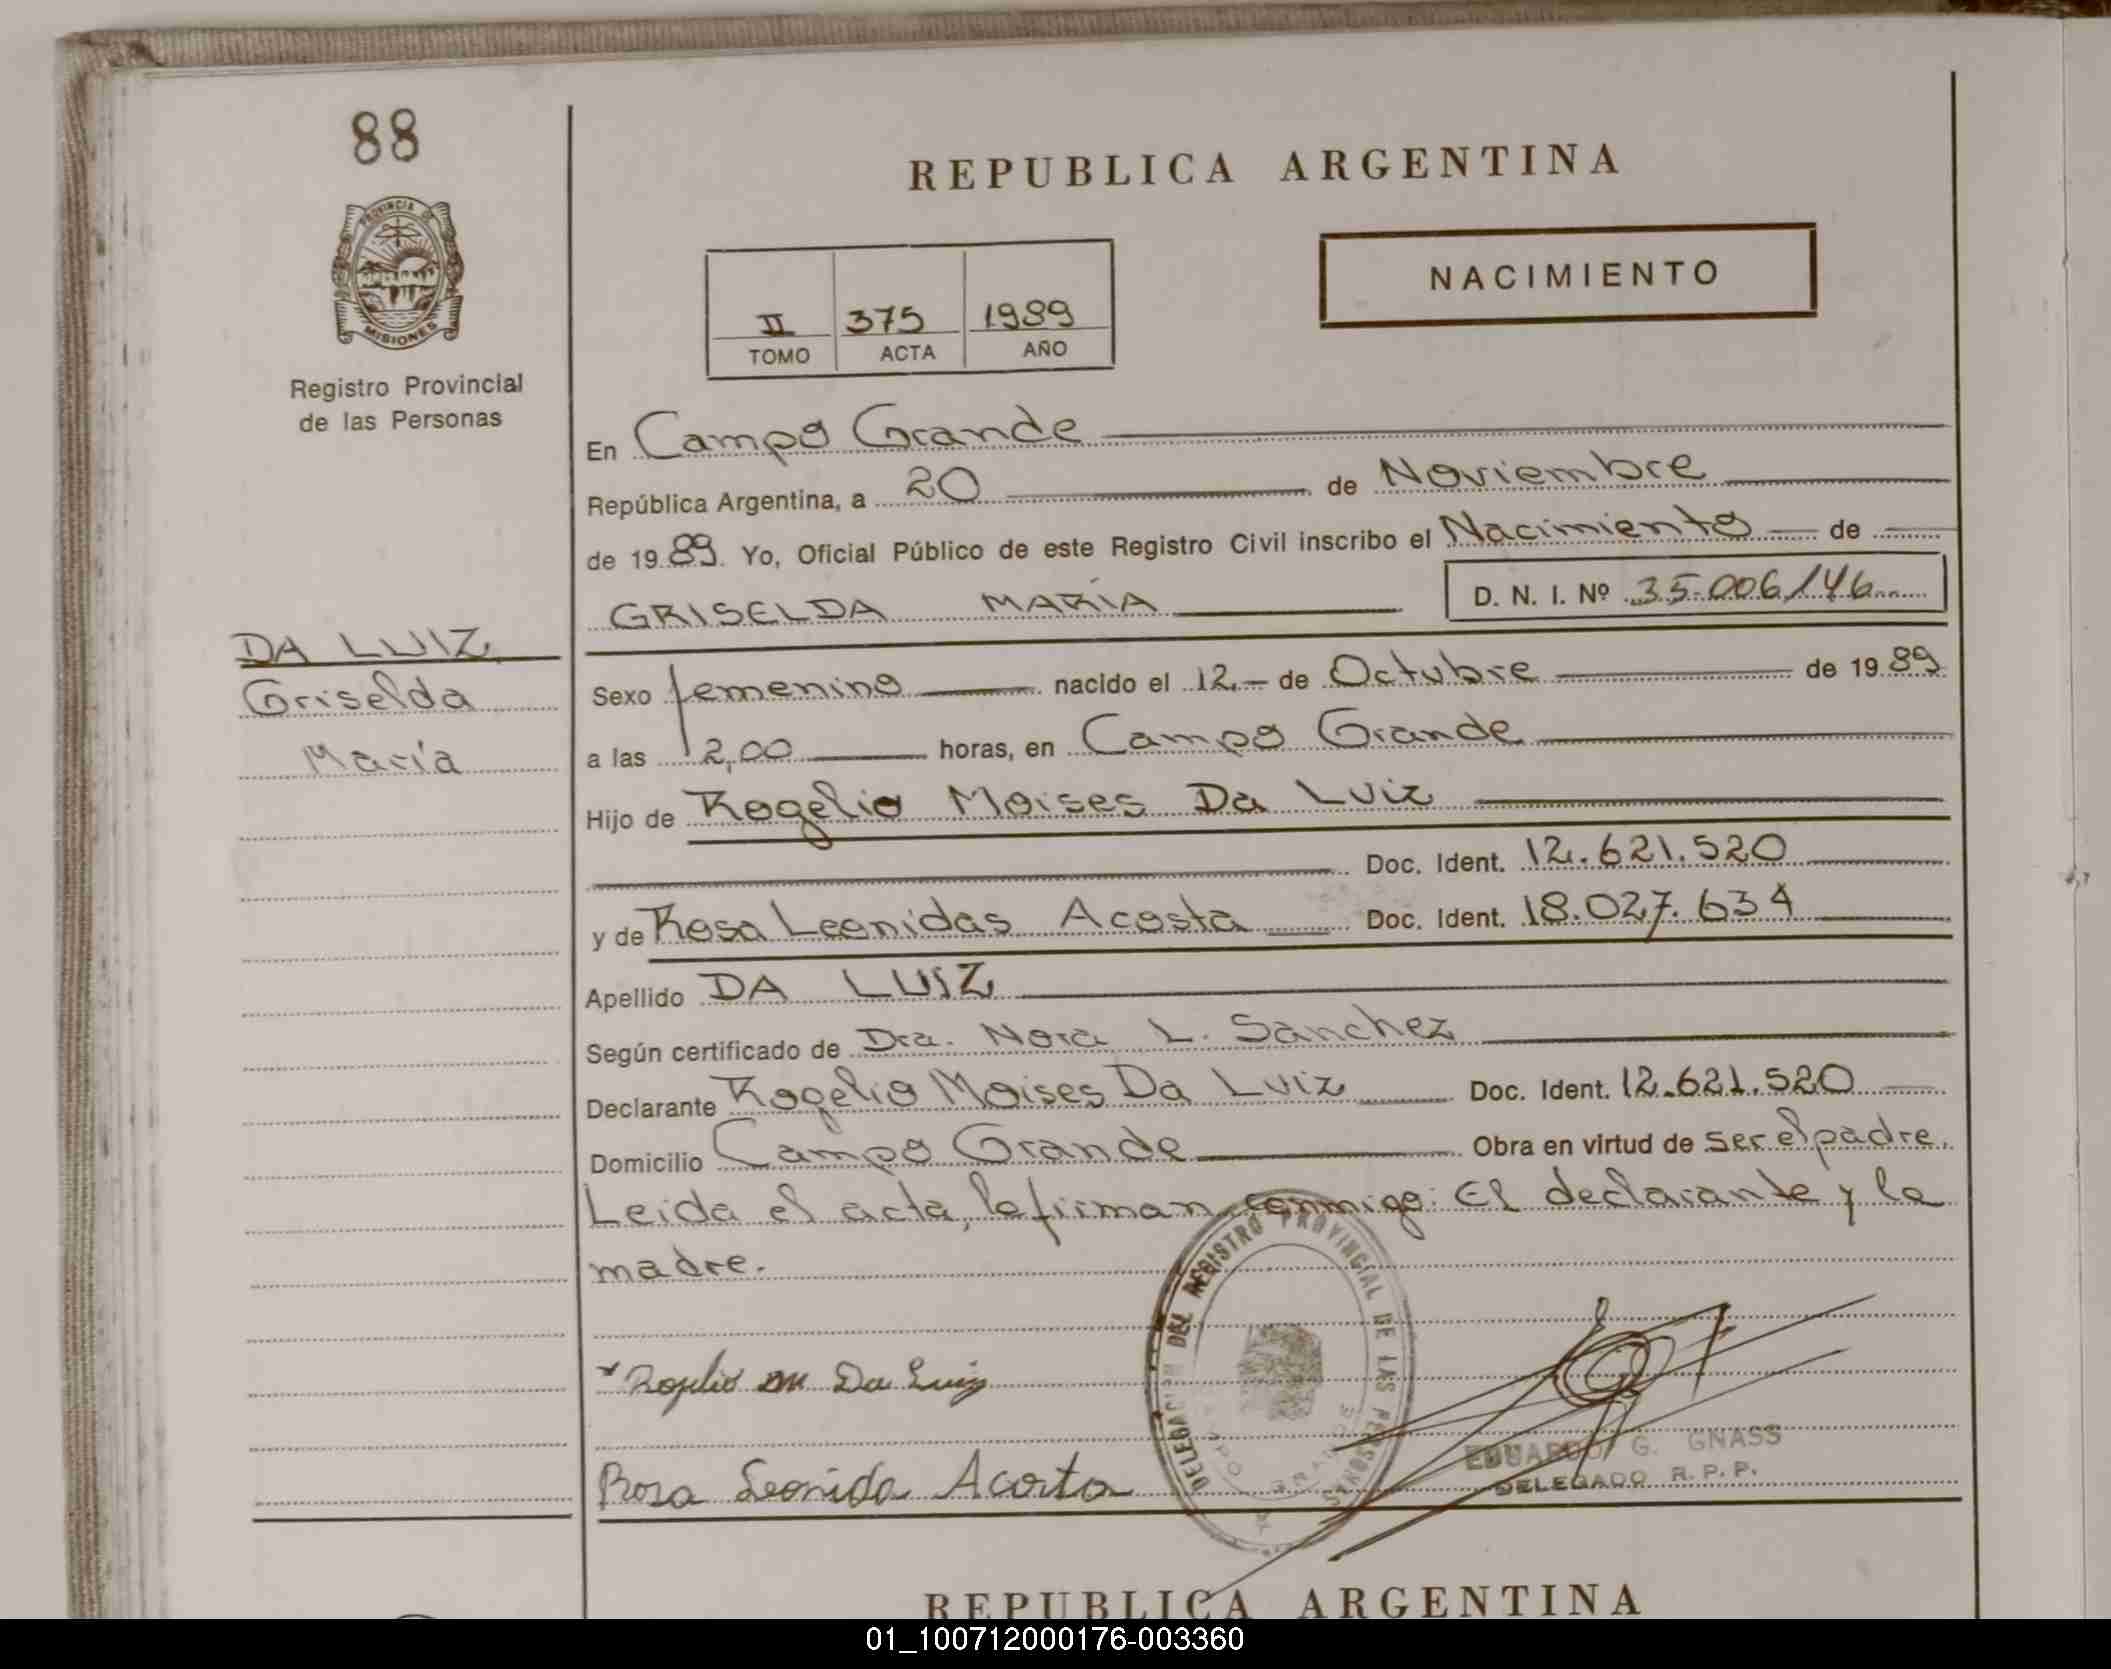 88
PROVINCIA DE
MISIONES
Registro Provincial
de las Personas
DA LUIZ
Griselda
María
REPUBLICA ARGENTINA
NACIMIENTO
II 375 1989
TOMO ACTA AÑO
En Campo Grande
República Argentina, a 20 de Noviembre
de 1989. Yo, Oficial Público de este Registro Civil inscribo el Nacimiento de
GRISELDA MARÍA D. N. I. Nº 35.006146
Sexo femenino nacido el 12.- de Octubre de 1989
a las 12,00 horas, en Campo Grande
Hijo de Rogelio Moises Da Luiz
Doc. Ident. 12.621.520
y de Rosa Leonidas Acosta Doc. Ident. 18.027.634
Apellido DA LUIZ
Según certificado de Dra. Nora L. Sanchez
Declarante Rogelio Moises Da Luiz Doc. Ident. 12.621.520
Domicilio Campo Grande Obra en virtud de ser el padre.
Leida el acta, la firman conmigo: El declarante y la
madre.
DELEGACION DEL REGISTRO PROVINCIAL DE LAS PERSONAS
CAMPO GRANDE
Rogelio M Da Luiz
EDUARDO G. GNASS
DELEGADO R.P.P.
Rosa Leonida Acosta
REPUBLICA ARGENTINA
01_100712000176-003360